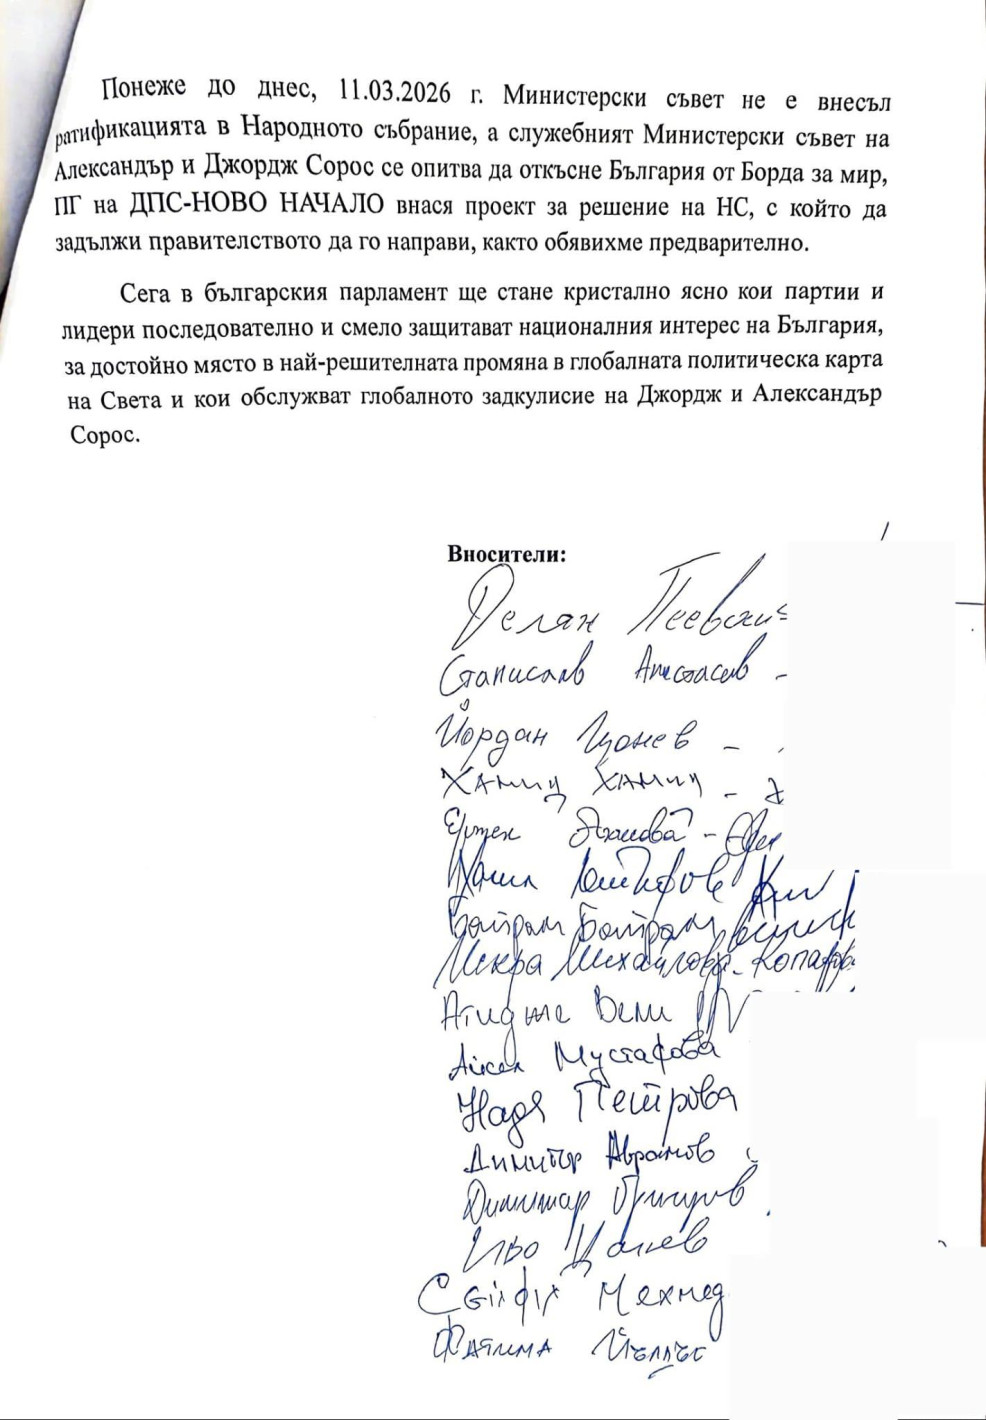 Понеже до днес, 11.03.2026 г. Министерски съвет не е внесъл
ратификацията в Народното събрание, а служебният Министерски съвет на
Александър и Джордж Сорос се опитва да откъсне България от Борда за мир,
ПГ на ДПС-НОВО НАЧАЛО внася проект за решение на НС, с който да
задължи правителството да го направи, както обявихме предварително.
Сега в българския парламент ще стане кристално ясно кои партии и
лидери последователно и смело защитават националния интерес на България,
за достойно място в най-решителната промяна в глобалната политическа карта
на Света и кои обслужват глобалното задкулисие на Джордж и Александър
Сорос.
Вносители:
Делян Пеевски
Станислав Анастасов -
Йордан Цонев -
Хамид Хамид -
Ертен
Халил Летифов
Байрам Байрам
Искра Михайлова-Копарова
Атидже Вели
Айсел Мустафова
Надя Петрова
Димитър Аврамов
Димитър
Иво Цанев
Сейфи Мехмед
Фатима Йълдъз